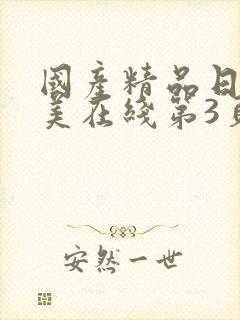 國產精品日
美在綫第3頁
安然一世